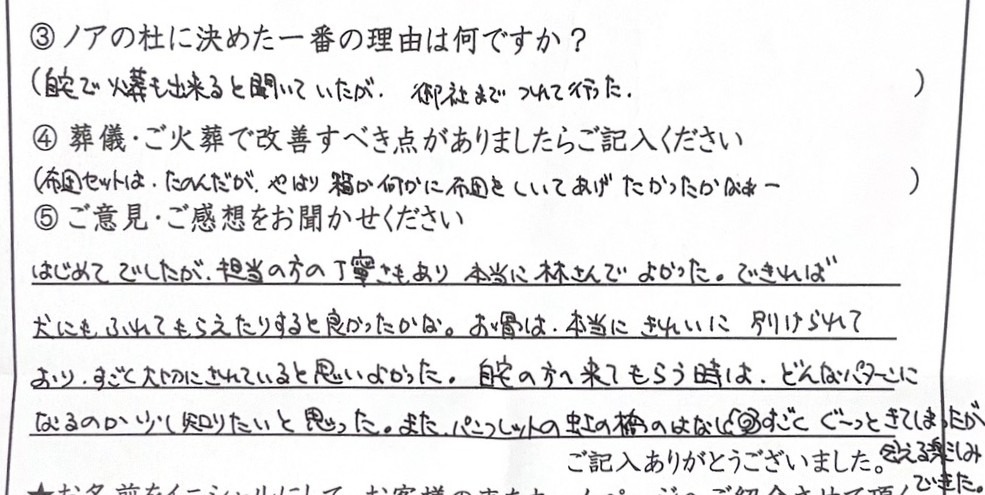 ③ ノアの杜に決めた一番の理由は何ですか？
(自宅で火葬も出来ると聞いていたが、御社までつれて行った。)
④ 葬儀・ご火葬で改善すべき点がありましたらご記入ください
(布団セットは、たのんだが、やはり箱か何かに布団をしいてあげたかったかなぁー)
⑤ ご意見・ご感想をお聞かせください
はじめてでしたが、担当の方の丁寧さもあり 本当に林さんでよかった。できれば
犬にもふれてもらえたりすると良かったかな。お骨は、本当にきれいに 分けられて
おり、すごく大切にされていると思いよかった。自宅の方へ来てもらう時は、どんなパターンに
なるのか少し知りたいと思った。また、パンフレットの虹の橋のはなし すごく ぐーっときてしまったが
会える楽しみ
できた。
ご記入ありがとうございました。
★お名前をイニシャルにして、お客様の声をホームページへご紹介させて頂く